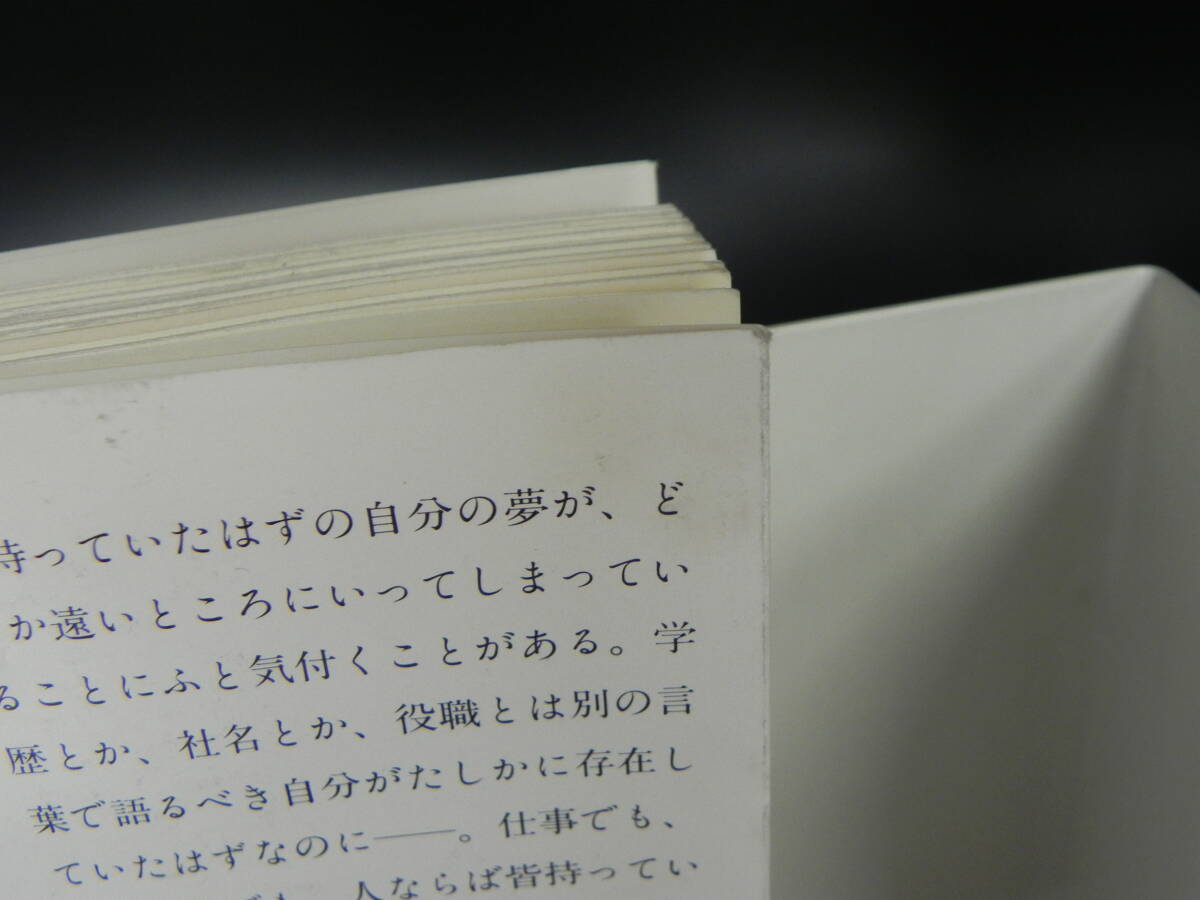 持っていたはずの自分の夢が、ど
か遠いところにいってしまってい
ることにふと気付くことがある。学
歴とか、社名とか、役職とは別の言
葉で語るべき自分がたしかに存在し
ていたはずなのに――。仕事でも、
でも、人ならば皆持ってい